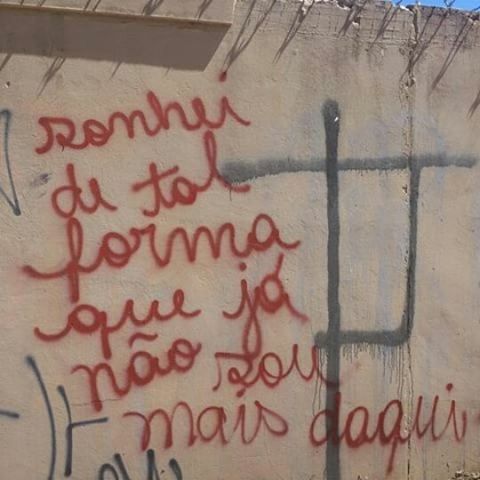 sonhei
de tal
forma
que já
não sou
mais daqui